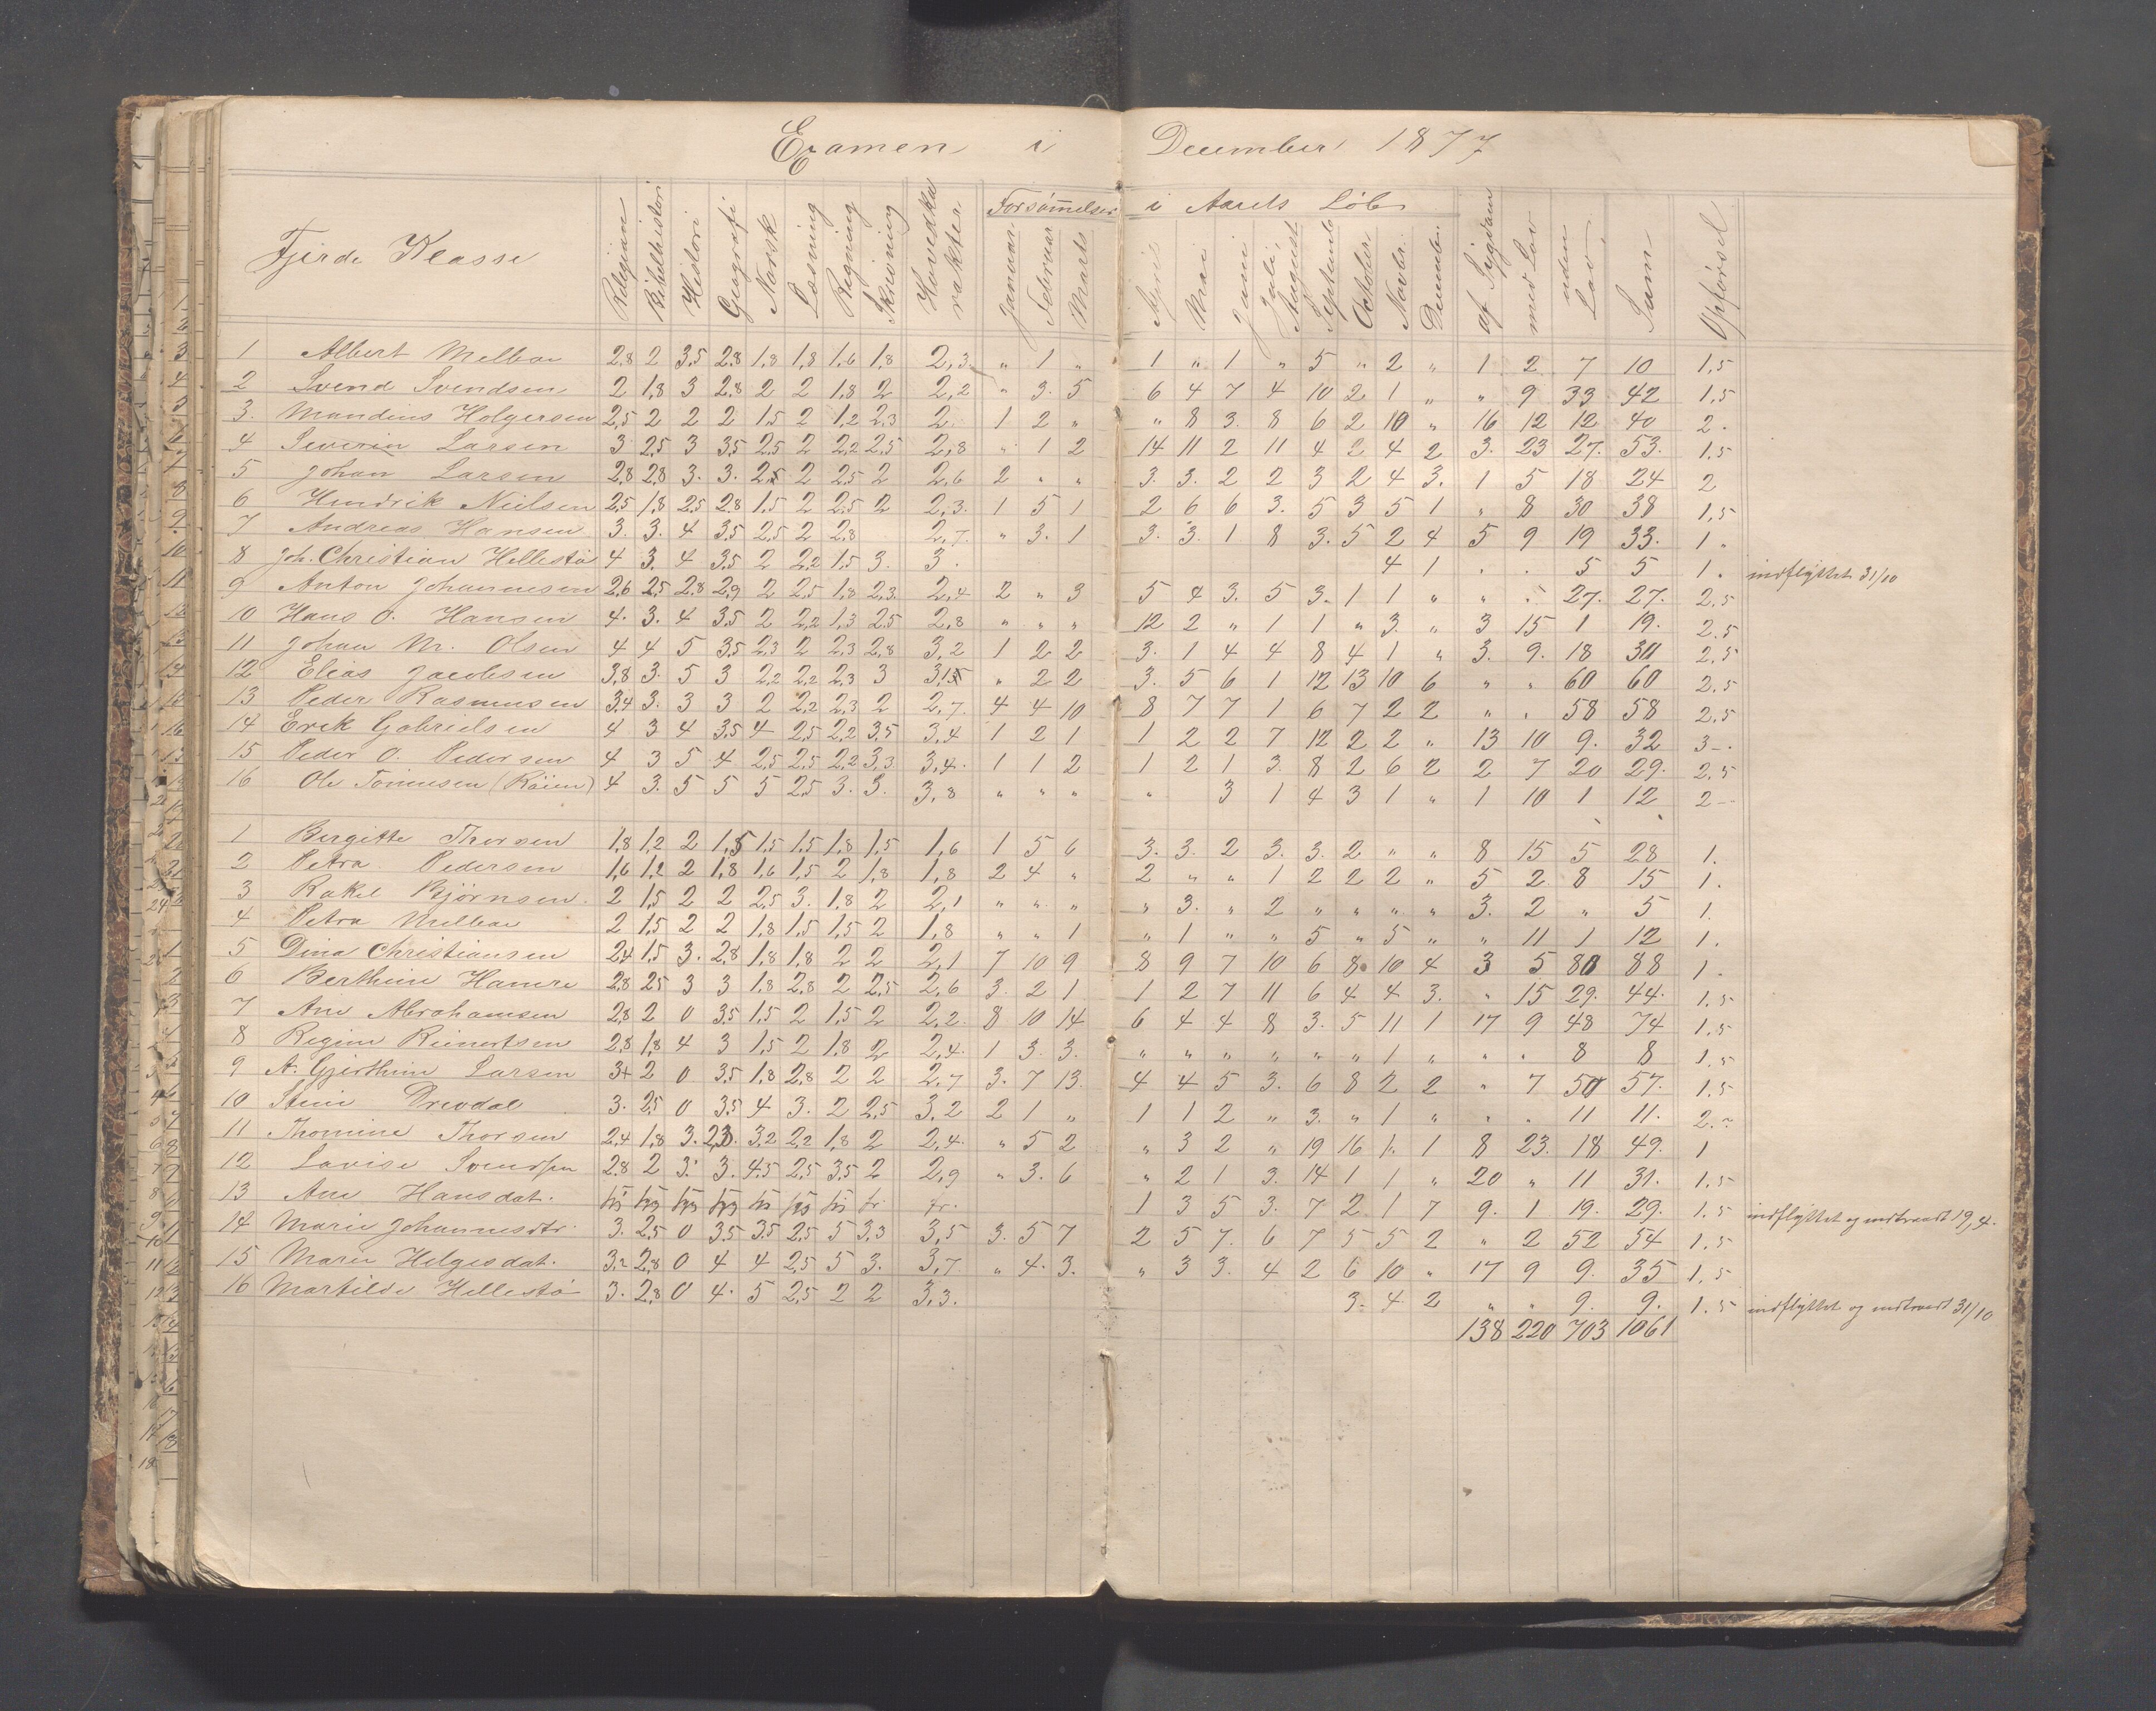 Examen i December 1877
Fjerde Klasse Religion Bibelhistori Histori Geografi Norsk Læsning Regning Skrivning Hovedka rakter Forsømmelser i Aarets Løb Januar Februar Marts April Mai Juni Juli August Septemb October Novbr. Decembr. af Sygdom med Lov uden Lov. Sum Opførsel
1 Albert Melbær 2,8 2 3,5 2,8 1,8 1,8 1,6 1,8 2,3 " 1 " 1 " 1 " 5 " 2 " 1 2 7 10 1,5
2 Svend Svendsen 2 1,8 3 2,8 2 2 1,8 2 2,2 " 3. 5 6 4 7 4 10 2 1 " " 9 33 42 1,5
3. Mandius Holgersen 2,5 2 2 2 1,5 2 1,2 2,3 2 1 2 " " 8 3. 8 6 2 10 " 16 12 12 40 2.
4 Severin Larsen 3 2,5 3 3,5 2,5 2 2,2 2,5 2,8 " 1 2 14 11 2 11 4 2 4 2 3. 23 27. 53. 1,5
5 Johan Larsen 2,8 2,8 3. 3. 2,5 2 2,5 2 2,6 2 " " 3. 3. 2 2 3 2 4 3. 1 5 18 24 2
6 Hendrik Nielsen 2,5 1,8 2,5 2,8 1,5 2 2,5 2 2,3. 1 5 1 2 6 6 3. 5 3 5 1 " 8 30 38 1,5
7 Andreas Hansen 3. 3. 4 3,5 2,5 2 2,8 2,7. " 3. 1 3. 3. 1 8 3. 5 2 4 5 9 19 33. 1 "
8 Joh. Christian Hellestø 4 3. 4 3,5 2 2,2 1,5 3. 3. 4 1 . . 5 5 1. indflyttet 31/10
9 Anton Johannesen 2,6 2,5 2,8 2,9 2 2,5 1,8 2,3 2,4 2 " 3 5 4 3. 5 3. 1 1 " " " 27. 27. 2,5
10 Hans O. Hansen 4. 3. 4 3,5 2 2,2 1,3 2,5 2,8 " " " 12 2 " 1 1 " 3. " 3 15 1 19. 2.5
11 Johan M. Olsen 4 4 5 3,5 2,3 2 2,3 2,8 3,2 1 2 2 3. 1 4 4 8 4 1 " 3. 9. 18 30 2,5
12 Elias Jacobsen 3,8 3. 5 3 2,2 2,2 2,3 3 3,1 " 2 2 3. 5 6 1 12 13 10 6 " " 60 60 2.5
13 Peder Rasmusen 3,4 3. 3 3 2 2,2 2,3 2 2,7. 4 4 10 8 7 7 1 6 7 2 2 " . 58 58 2,5
14 Erik Gabrielsen 4 3 4 3,5 4 2,5 2,2 3,5 3,4 1 2 1 1 2 2 7 12 2 2 " 13 10 9. 32 3 -.
15 Peder O. Pedersen 4 3 5 4 2,5 2,5 2,2 3,3 3,4. 1 1 2 1 2 1 3. 8 2 6 2 2 7 20 29. 2,5
16 Ole Tønnesen (Røien) 4 3. 5 5 5 2,5 3. 3. 3,8 " " " " 3 1 4 3 1 " 1 10 1 12 2 -
1 Bergitte Thorsen 1,8 1,2 2 1,5 1,5 1,5 1,8 1,5 1,6 1 5 6 3. 3. 2 3. 3. 2 " " 8 15 5 28 1.
2 Petra Pedersen 1,6 1,2 2 1,8 1,6 1,5 2 1,8 1,8 2 4 " 2 " " 1 2 2 2 " 5 2 8 15 1.
3 Rakel Bjørnsen. 2 1,5 2 2 2,5 3. 1,8 2 2,1 " " " " 3. " 2 " " " " 3. 2 " 5 1.
4 Petra Melbær 2 1,5 2 2 1,8 1,5 1,5 2 1,8 " " 1 " 1 " " 5 " 5 " " 11 1 12 1.
5 Dina Christiansen 2,4 1,5 3. 2,8 1,8 1,8 2 2 2,1 7 10 9 8 9 7 10 6 8 10 4 3 5 80 88 1.
6 Berthine Hamre 2,8 2,5 3 3 1,8 2,8 2 2,5 2,6 3. 2 1 1 2 7 11 6 4 4 3. " 15 29. 44. 1,5
7 Ane Abrahamsen 2,8 2 0 3,5 1,5 2 1,5 2 2,2. 8 10 14 6 4 4 8 3. 5 11 1 17 9 48 74 1,5
8 Regine Reinertsen 2,8 1,8 4 3 1,5 2 1,8 2 2,4. 1 3. 3. " " " " " " 1 " " . 8 8 1.5
9 A. Gjerthine Larsen 3,4 2 0 3,5 1,8 2,8 2 2 2,7 3. 7 13. 4 4 5 3. 6 8 2 2 " 7 50 57. 1,5
10 Stine Drevdal 3. 2,5 0 3,5 4 3. 2 2,5 3,2 2 1 " 1 1 2 " 3. " 1 " " . 11 11. 2.
11 Thomine Thorsen 2,4 1,8 3. 2,8. 3,2 2,2 1,8 2 2,4. " 5 2 " 3 2 " 19 16 1. 1 8 23. 18 49. 1
12 Lovise Svendsen 2.8 2 3. 3. 4.5 2,5 3,5 2 2,9 " 3. 6 " 2 1 3. 14 1 1 " 20 " 11 31. 1.5
13 Ane Hansdat. fr. fr. 1 3 5 3. 7 2 1 7 9. 1 19. 29. 1.5 indflyttet og indtraadt 19/4.
14 Marie Johannesdtr. 3. 2,5 0 3,5 3,5 2,5 5 3,3 3,5 3. 5 7 2 5 7. 6 7 5 5 2 " 2 52 54 1,5
15 Marie Helgesdat. 3,2 2,8 0 4 4 2,5 5 3. 3,7 " 4. 3. " 3 3. 4 2 6 10 " 17 9 9. 35 1,5
16 Martilde Hellestø 3. 2,8 0 4. 5 2,5 2 2 3,3. 3. 4 2 " " 9. 9. 1.5 indflyttet og indtraadt 31/10
138 220 703 1061